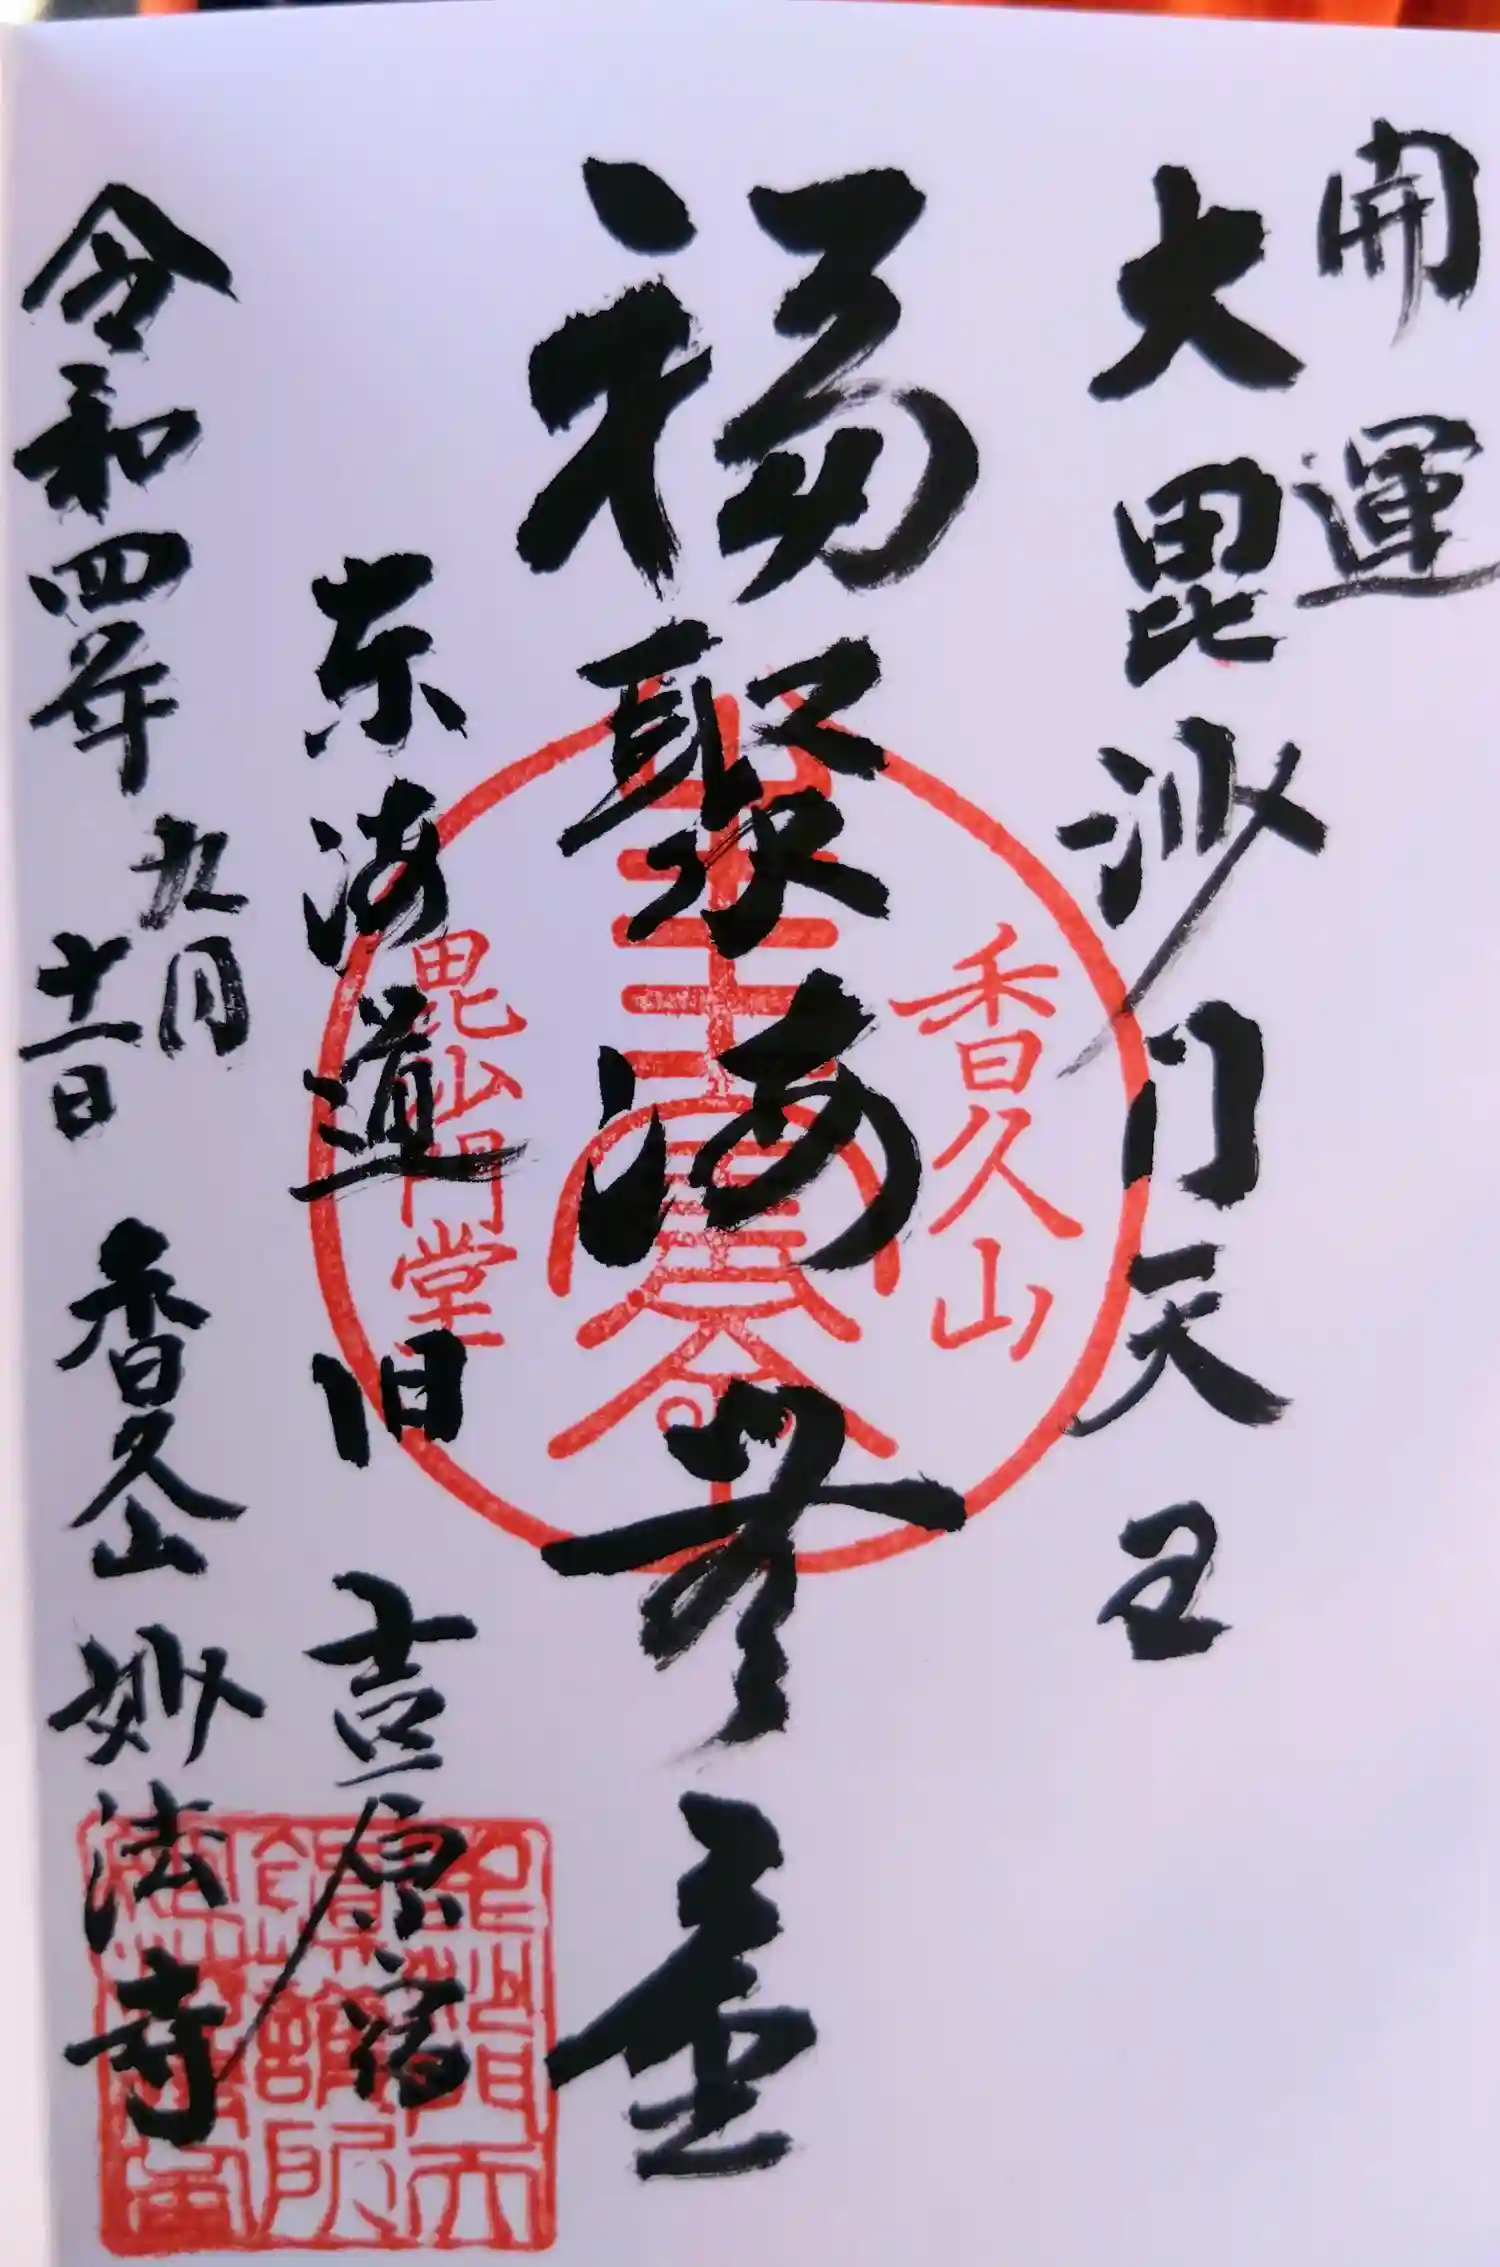 開運
大毘沙門天王
福聚海無量
東海道旧吉原宿
令和四年九月十一日香久山妙法寺
香久山
毘沙門堂